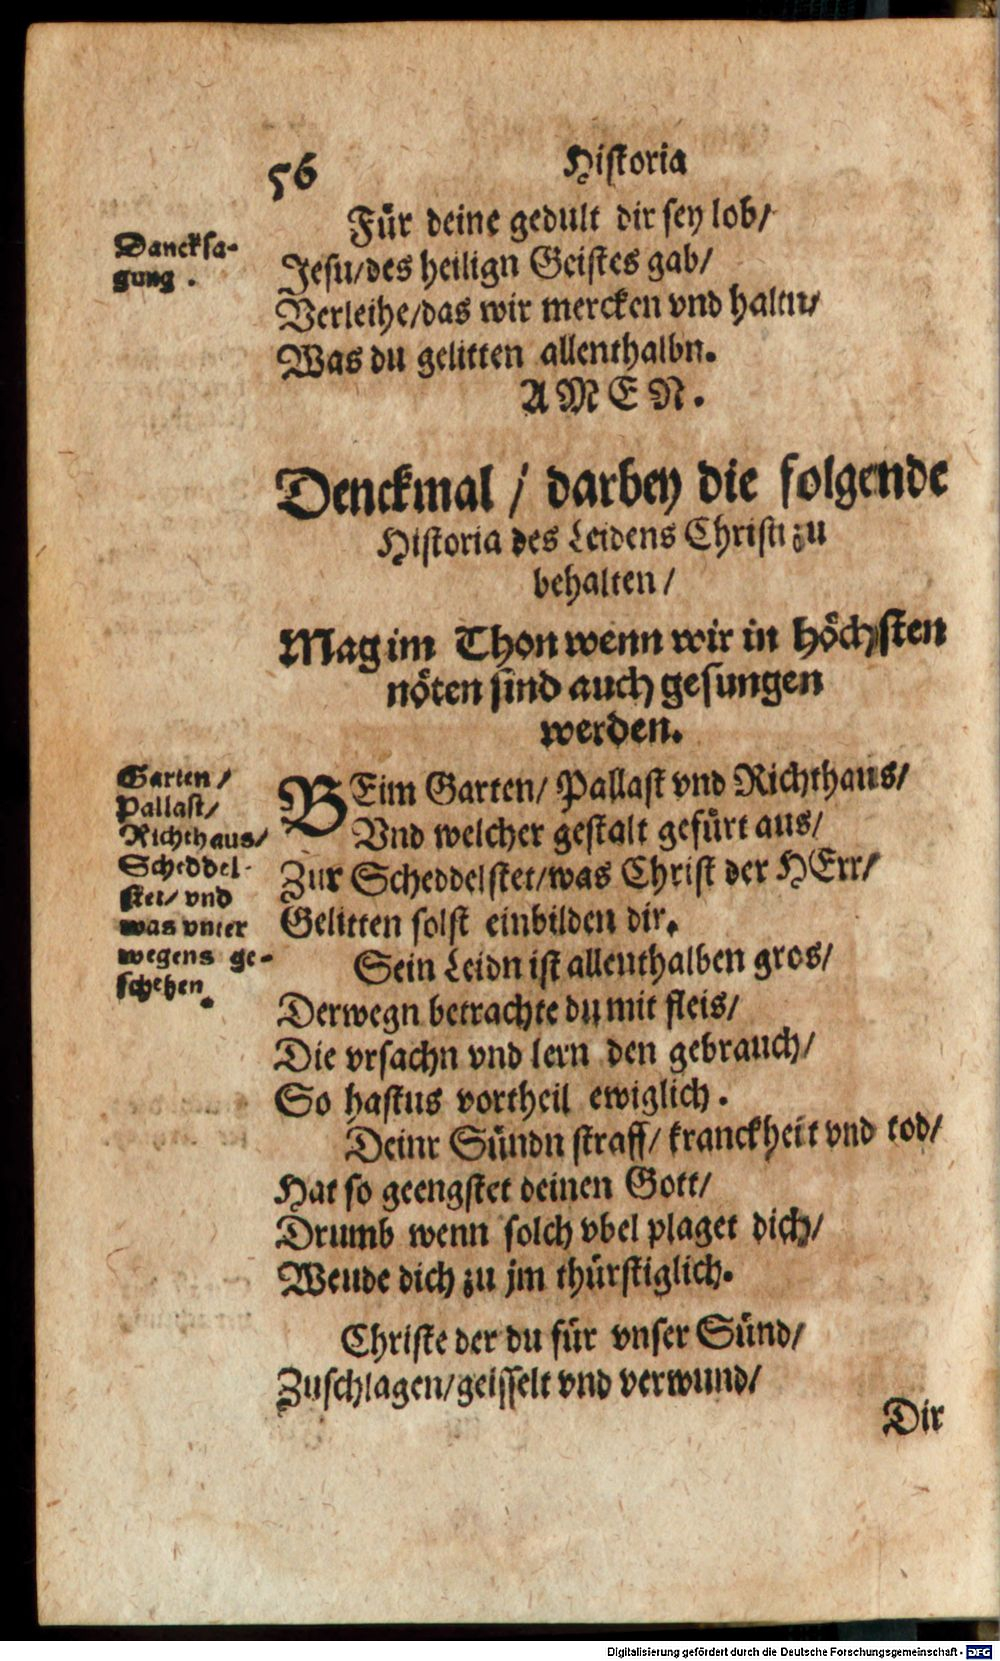 56 Historia
Für deine gedult dir sey lob/
Dancksa-
gung.
Jesu/des heilign Geistes gab/
Verleihe/das wir mercken vnd haltn/
Was du gelitten allenthalbn.
AMEN.
Denckmal / darbey die folgende
Historia des Leidens Christi zu
behalten /
Mag im Thon wenn wir in höchsten
nöten sind auch gesungen
werden.
Garten /
Pallast/
Richthaus/
Scheddel-
stet/ vnd
was vnter
wegens ge-
schehen.
BEim Garten/ Pallast vnd Richthaus/
Vnd welcher gestalt gefürt aus/
Zur Scheddelstet/was Christ der HErr/
Gelitten solst einbilden dir.
Sein Leidn ist allenthalben gros/
Derwegn betrachte du mit fleis/
Die vrsachn vnd lern den gebrauch/
So hastus vortheil ewiglich.
Deinr Sündn straff/ kranckheit vnd tod/
Hat so geengstet deinen Gott/
Drumb wenn solch vbel plaget dich/
Wende dich zu jm thürstiglich.
Christe der du für vnser Sünd/
Zuschlagen/geisselt vnd verwund/
Dir
Digitalisierung gefördert durch die Deutsche Forschungsgemeinschaft - DFG